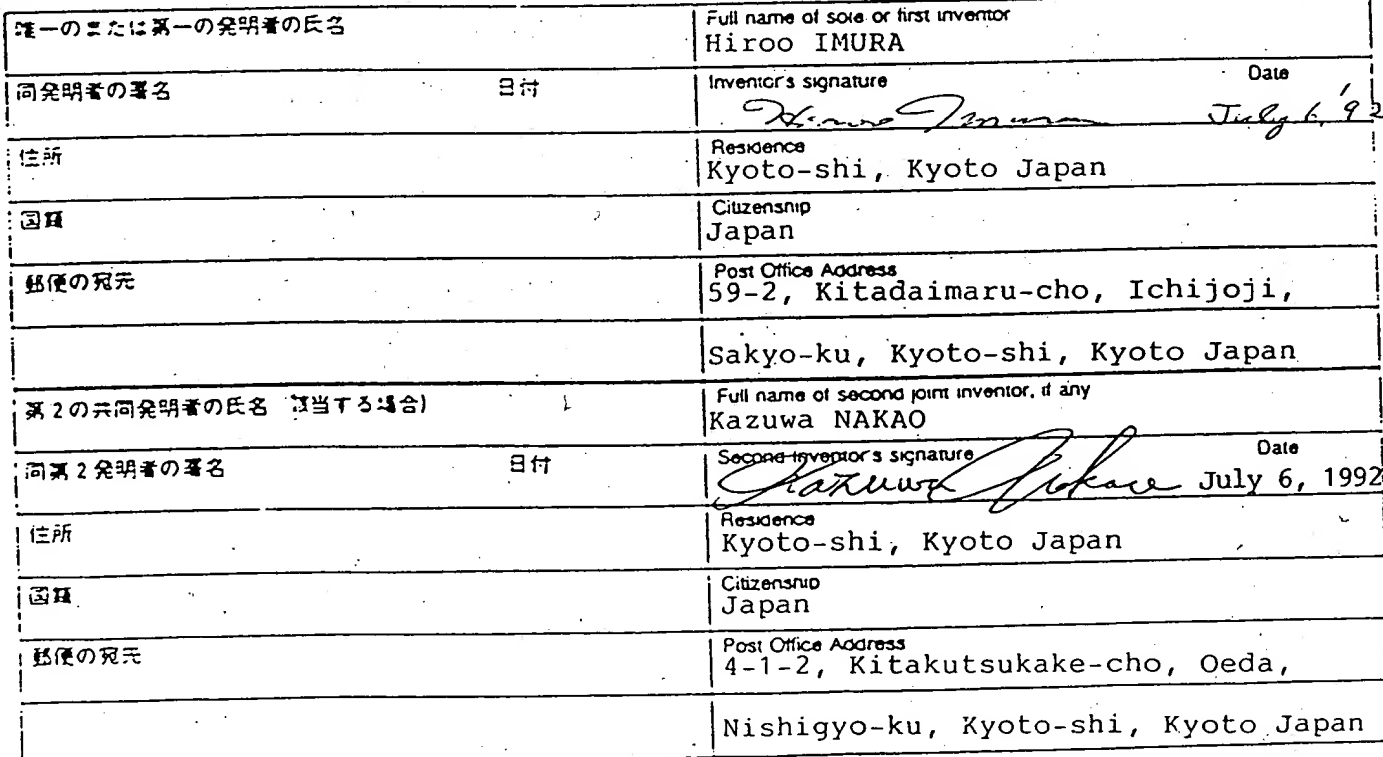 唯一のまたは第一の発明者の氏名
Full name of sole or first inventor
Hiroo IMURA
同発明者の署名 日付
Inventor's signature Date
Hiroo Imura July 6, '92
住所
Residence
Kyoto-shi, Kyoto Japan
国籍
Citizenship
Japan
郵便の宛元
Post Office Address
59-2, Kitadaimaru-cho, Ichijoji,
Sakyo-ku, Kyoto-shi, Kyoto Japan
第2の共同発明者の氏名 該当する場合)
Full name of second joint inventor, if any
Kazuwa NAKAO
同第2発明者の署名 日付
Second inventor's signature Date
Kazuwa Nakao July 6, 1992
住所
Residence
Kyoto-shi, Kyoto Japan
国籍
Citizenship
Japan
郵便の宛元
Post Office Address
4-1-2, Kitakutsukake-cho, Oeda,
Nishigyo-ku, Kyoto-shi, Kyoto Japan